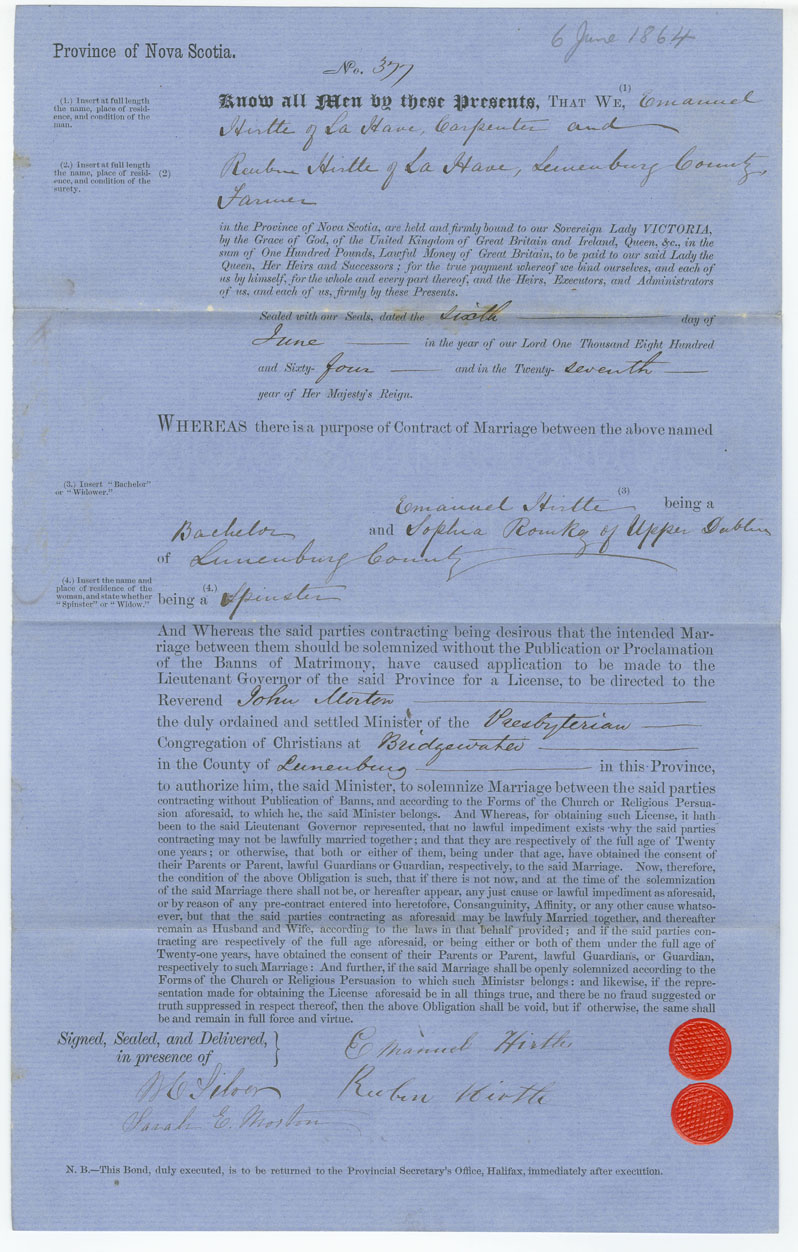 6 June 1864
Province of Nova Scotia.
No. 377
(1.) Insert at full length
the name, place of resid-
ence, and condition of the
man.
Know all Men by these Presents, THAT WE, (1) Emanuel
Hirtle of La Have, Carpenter and
(2.) Insert at full length
the name, place of resi-
sence, and condition of the
surety.
(2) Reuben Hirtle of La Have, Lunenburg County,
Farmer
in the Province of Nova Scotia, are held and firmly bound to our Sovereign Lady VICTORIA,
by the Grace of God, of the United Kingdom of Great Britain and Ireland, Queen, &c., in the
sum of One Hundred Pounds, Lawful Money of Great Britain, to be paid to our said Lady the
Queen, Her Heirs and Successors; for the true payment whereof we bind ourselves, and each of
us by himself, for the whole and every part thereof, and the Heirs, Executors, and Administrators
of us, and each of us, firmly by these Presents.
Sealed with our Seals, dated the sixth day of
June in the year of our Lord One Thousand Eight Hundred
and Sixty- four and in the Twenty- seventh
year of Her Majesty's Reign.
WHEREAS there is a purpose of Contract of Marriage between the above named
(3.) Insert "Bachelor"
or "Widower."
Emanuel Hirtle (3) being a
Bachelor and Sophia Romkey of Upper Dublin
of Lunenburg County
(4.) Insert the name and
place of residence of the
woman, and state whether
"Spinster" or "Widow."
being a (4.) Spinster
And Whereas the said parties contracting being desirous that the intended Mar-
riage between them should be solemnized without the Publication or Proclamation
of the Banns of Matrimony, have caused application to be made to the
Lieutenant Governor of the said Province for a License, to be directed to the
Reverend John Morton
the duly ordained and settled Minister of the Presbyterian
Congregation of Christians at Bridgewater
in the County of Lunenburg in this Province,
to authorize him, the said Minister, to solemnize Marriage between the said parties
contracting without Publication of Banns, and according to the Forms of the Church or Religious Persua-
sion aforesaid, to which he, the said Minister belongs. And Whereas, for obtaining such License, it hath
been to the said Lieutenant Governor represented, that no lawful impediment exists why the said parties
contracting may not be lawfully married together; and that they are respectively of the full age of Twenty
one years; or otherwise, that both or either of them, being under that age, have obtained the consent of
their Parents or Parent, lawful Guardians or Guardian, respectively, to the said Marriage. Now, therefore,
the condition of the above Obligation is such, that if there is not now, and at the time of the solemnization
of the said Marriage there shall not be, or hereafter appear, any just cause or lawful impediment as aforesaid,
or by reason of any pre-contract entered into heretofore, Consanguinity, Affinity, or any other cause whatso-
ever, but that the said parties contracting as aforesaid may be lawfuly Married together, and thereafter
remain as Husband and Wife, according to the laws in that behalf provided; and if the said parties con-
tracting are respectively of the full age aforesaid, or being either or both of them under the full age of
Twenty-one years, have obtained the consent of their Parents or Parent, lawful Guardians, or Guardian,
respectively to such Marriage: And further, if the said Marriage shall be openly solemnized according to the
Forms of the Church or Religious Persuasion to which such Ministsr belongs: and likewise, if the repre-
sentation made for obtaining the License aforesaid be in all things true, and there be no fraud suggested or
truth suppressed in respect thereof, then the above Obligation shall be void, but if otherwise, the same shall
be and remain in full force and virtue.
Signed, Sealed, and Delivered,
in presence of
Emanuel Hirtle
Silver
Reuben Hirtle
Sarah E. Morton
N. B.—This Bond, duly executed, is to be returned to the Provincial Secretary's Office, Halifax, immediately after execution.